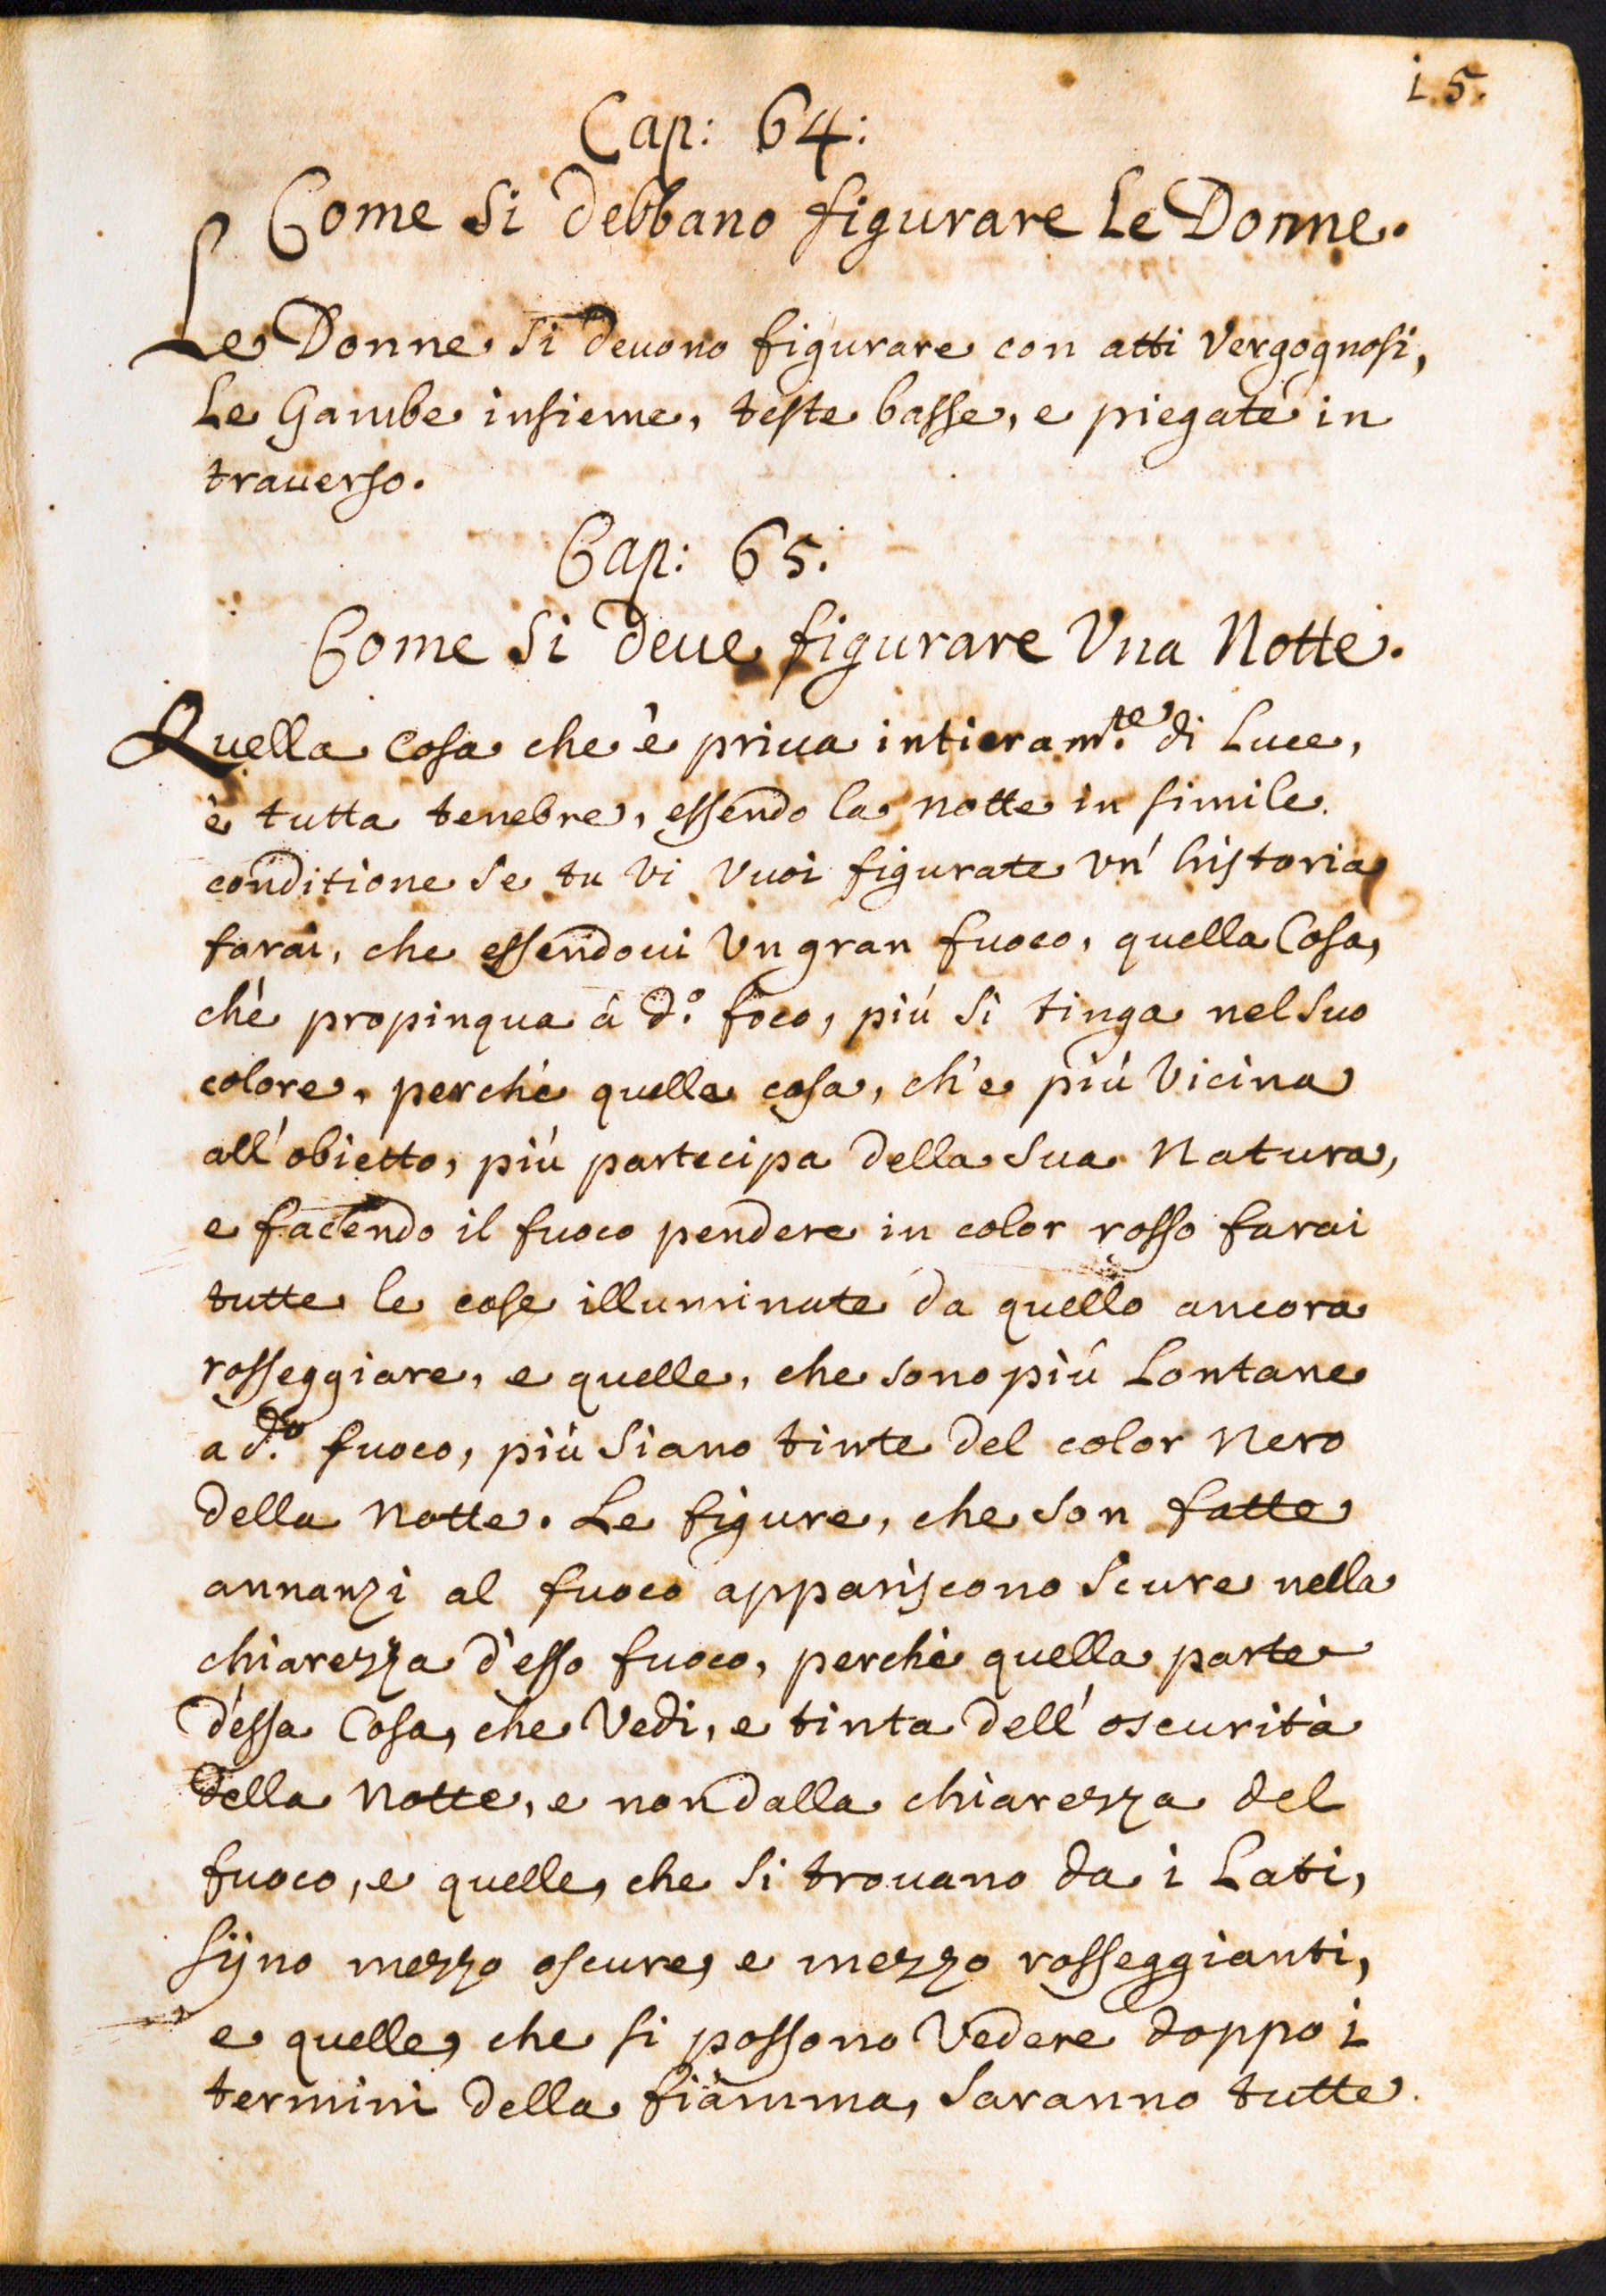 i5.
Cap: 64:
Come si debbano figurare Le Donne.
Le Donne si deuono figurare con atti vergognosi,
Le Gambe insieme, teste basse, e piegate in
trauerso.
Cap: 65:
Come si deue figurare Vna Notte.
Quella cosa che è priua intieram.te di Luce,
è tutta tenebre, essendo la notte in simile
conditione se tu vi vuoi figurate vn' historia
farai, che essendoui Vn gran fuoco, quella Cosa,
ch'è propinqua à d.o foco, più si tinga nel suo
colore, perche quella cosa, ch'e più Vicina
all'obietto, più partecipa della sua Natura,
e facendo il fuoco pendere in color rosso farai
tutte le cose illuminate da quello ancora
rosseggiare, e quelle, che sono più Lontane
a d.o fuoco, più siano tinte del color Nero
della Notte. Le figure, che son fatte
annanzi al fuoco appariscono scure nella
chiarezza d'esso fuoco, perchè quella parte
d'essa Cosa, che Vedi, e tinta dell'oscurità
della Notte, e non dalla chiarezza del
fuoco, e quelle, che si trouano da i Lati,
sijno mezzo oscure, e mezzo rosseggianti,
e quelle, che si possono Vedere doppo i
termini della fiamma, saranno tutte